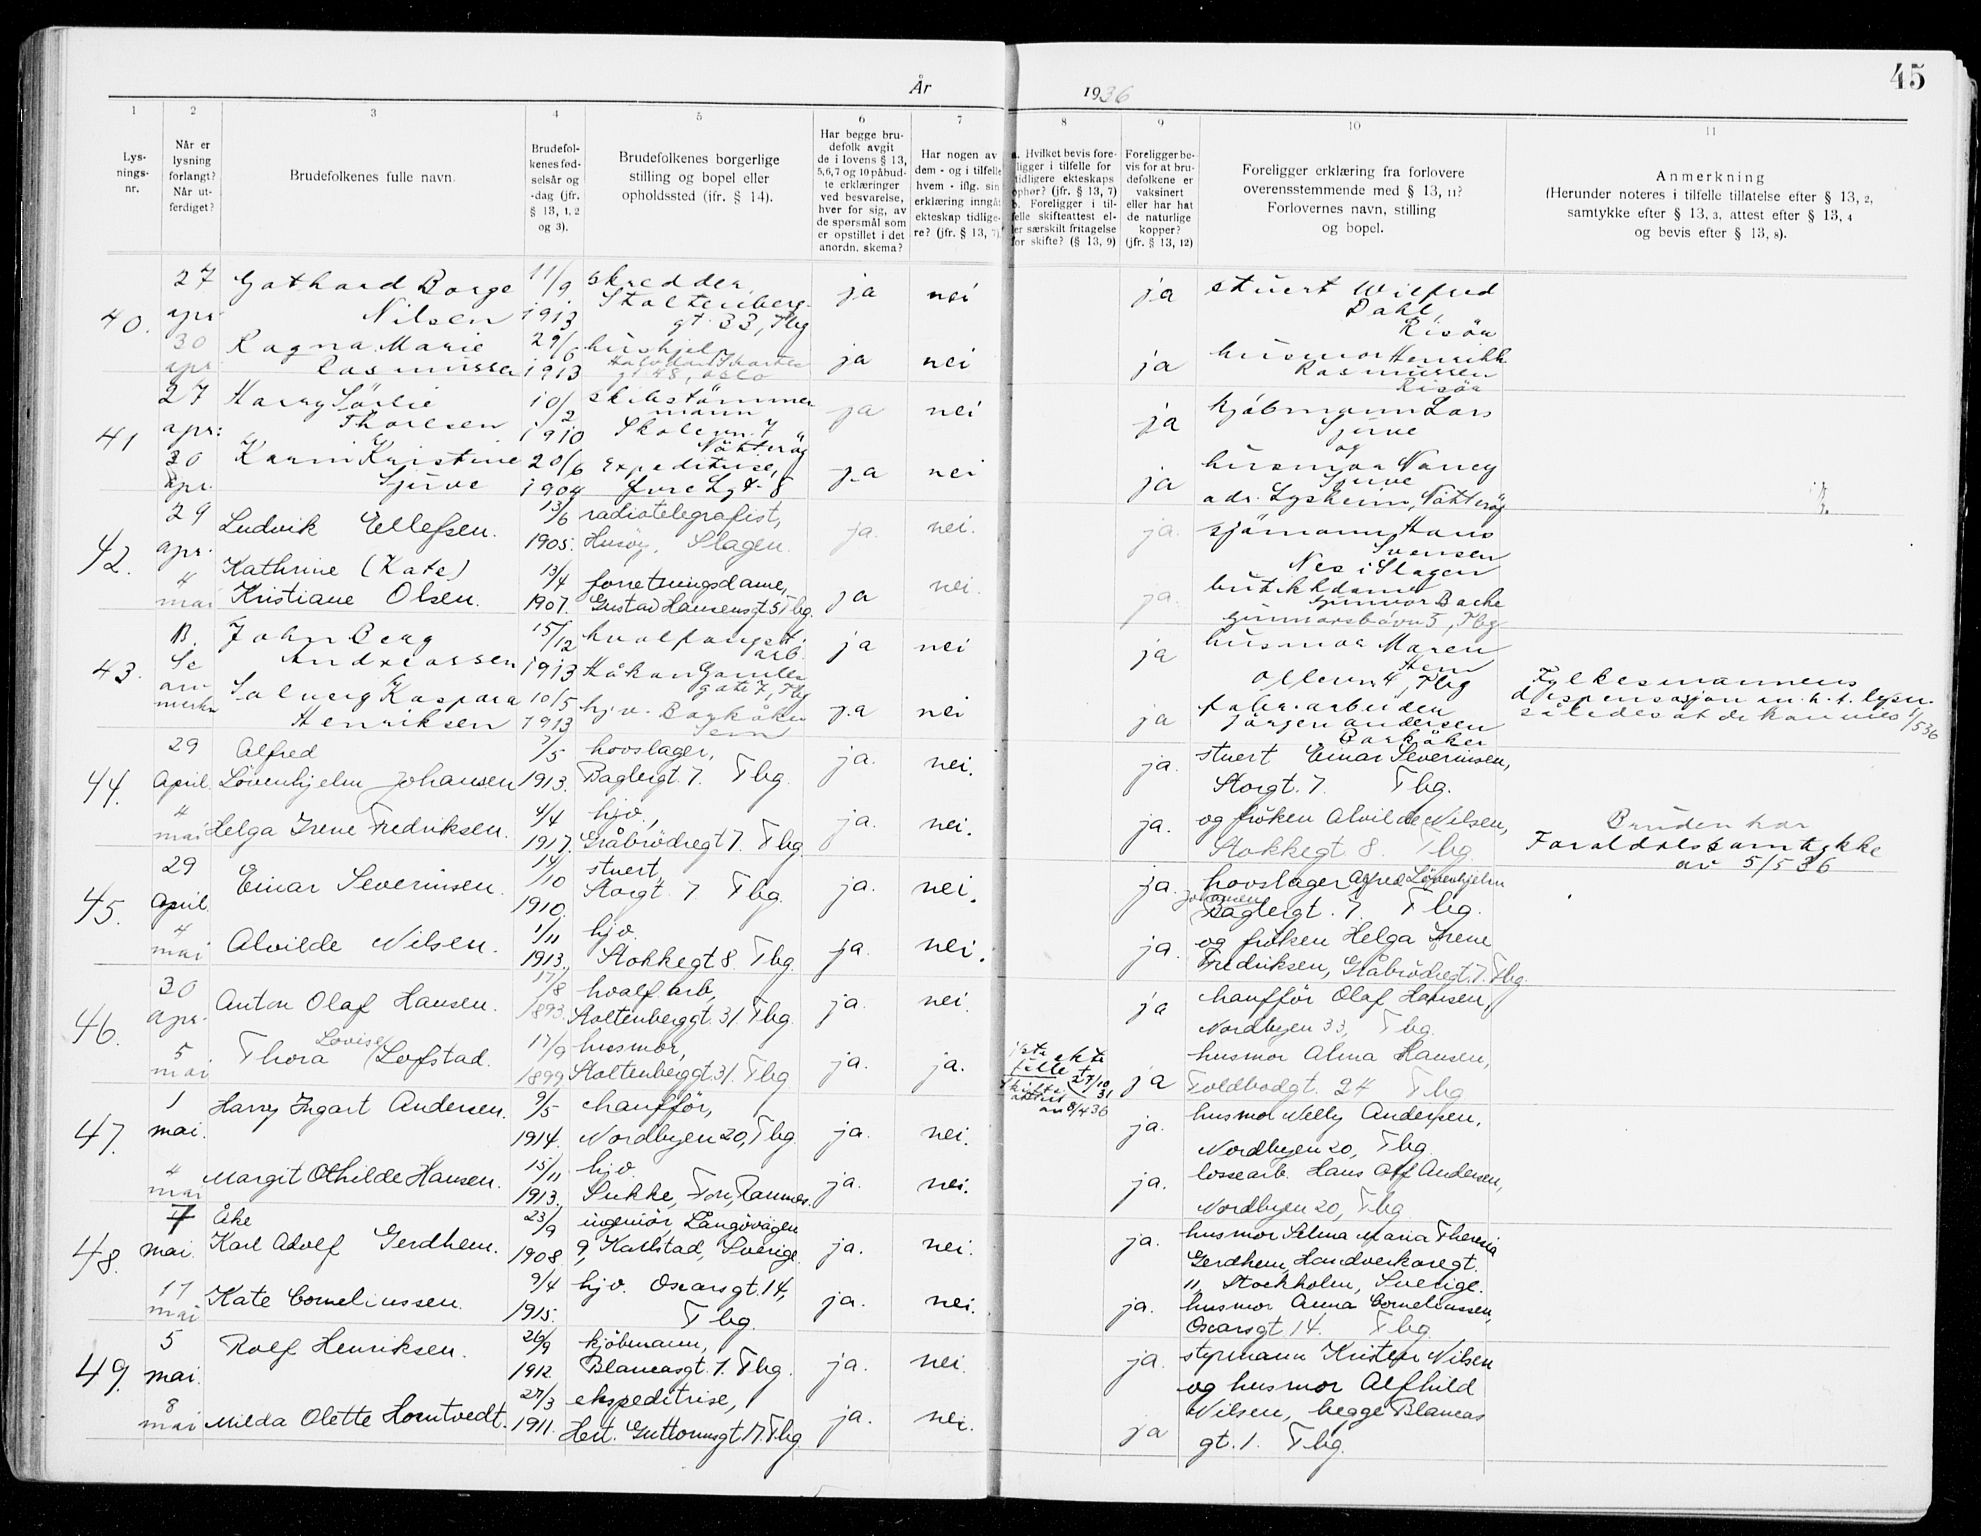 År 1936
45
1 2 3 4 5 6 7 8 9 10 11
Lysningsnr.
Når er lysning forlangt? Når utferdiget?
Brudefolkenes fulle navn.
Brudefolkenes fødselsår og -dag (jfr. § 13, 1, 2 og 3).
Brudefolkenes borgerlige stilling og bopel eller opholdssted (jfr. § 14).
Har begge brudefolk avgit de i lovens § 13, 5,6,7 og 10 påbudte erklæringer ved besvarelse, hver for sig, av de spørsmål som er opstillet i det anordn. skema?
Har nogen av dem - og i tilfelle hvem - iflg. sin erklæring inngåt ekteskap tidligere? (jfr. § 13, 7)
a. Hvilket bevis foreligger i tilfelle for tidligere ekteskaps ophør? (jfr. § 13, 7) b. Foreligger i tilfelle skifteattest eller særskilt fritagelse for skifte? (§ 13, 9)
Foreligger bevis for at brudefolkene er vaksinert eller har hat de naturlige kopper? (jfr. § 13, 12)
Foreligger erklæring fra forlovere overensstemmende med § 13, 11? Forlovernes navn, stilling og bopel.
Anmerkning (Herunder noteres i tilfelle tillatelse efter § 13, 2, samtykke efter § 13, 3, attest efter § 13, 4 og bevis efter § 13, 8).
40. 27 apr. Gothard Borge Nilsen 11/9 1913 skredder, Stoltenberg-gt. 33, Tbg ja nei ja stuert Wilfred Dahl, Risör
30 apr Ragna Marie Rasmussen 29/6 1913 hushjelp gt. 48, Oslo ja nei ja husmor Henrikk Rasmussen Risör
41 27 apr: Harry Sörlie Thorsen 10/2 1910 skibstömmermann Skolevn. 7 Nötteröy ja nei ja kjöbmann Lars Sjuve og
30 apr. Karin Kristine Sjuve 20/6 1904 Expeditrise, ja nei ja husmor Nancy Sjuve adr. Lysheim, Nötteröy
42. 29 apr. Ludvik Ellefsen. 13/6 1905. radiotelegrafist, Husøy, Slagen. ja. nei. ja. sjömann Hans Svensen Nes i Slagen
4 mai Kathrine (Kate) Kristiane Olsen. 13/4 1907. forretningsdame, Gustav Hansensgt. 5 Tbg. ja nei. ja. butikkdame Gunvor Bache Gunnarsbövn 5, Tbg
43. B. Se anmerkn John Berg Andreassen 15/12 1913 hvalfangstarb. Håkon Gamles gate 7, Tbg ja nei ja husmor Maren Hem Ollevn. 4, Tbg
Solveig Kaspara Henriksen 10/5 1913 hjv. Barkåker Sem ja nei ja fabr. arbeider Jörgen Andersen Barkåker
Fylkesmannens dispensasjon m.h.t. lysn. således at de kan vies 1/5 36
44. 29 April Alfred Lövenhjelm Johansen 7/5 1913. hovslager, Baglergt. 7. Tbg. ja. nei. ja. stuert Einar Severinsen, Storgt. 7. Tbg.
4 mai Helga Irene Fredriksen. 4/4 1917. hjv., Gråbrödregt 7. Tbg. ja. nei. ja. og fröken Alvilde Nilsen, Stokkegt 8. Tbg.
Bruden har Foreldresamtykke av 5/5 36
45. 29 April. Einar Severinsen. 14/10 1910. stuert, Storgt. 7 Tbg. ja. nei. ja. hovslager Alfred Lövenhjelm Johansen Baglergt. 7. Tbg.
4 mai Alvilde Nilsen. 1/11 1913. hjv. Stokkegt 8. Tbg. ja. nei. ja. og fröken Helga Irene Fredriksen, Gråbrödregt. 7. Tbg.
46. 30 apr. Anton Olaf Hansen. 17/8 1893. hvalf. arb, Stoltenberggt. 31. Tbg. ja. nei. ja chafför Olaf Hansen, Nordbyen 33, Tbg.
5 mai Thora Lovise Lofstad. 17/9 1899 husmor, Stoltenberggt. 31. Tbg ja. ja. skifteattest av 8/4 36 ja husmor Alma Hansen, Toldbodgt. 24 Tbg
47. 1 mai. Harry Ingart Andersen. 9/5 1914. chaufför, Nordbyen 20, Tbg. ja. nei. ja. husmor Nelly Andersen, Nordbyen 20, Tbg.
4 mai Margit Othilde Hansen. 15/11 1913. hjv. Sukke, Fon, Ramnes. ja. nei. ja. lossearb. Hans Olf Andersen, Nordbyen 20, Tbg
48. 7 mai. Åke Karl Adolf Gerdhem. 23/9 1908. ingeniör, Långövägen 9, Karlstad, Sverige. ja. nei. ja. husmor Selma Maria Theresia Gerdhem, Handverkaregt. 11, Stockholm, Sverige.
17 mai Kate Corneliussen. 9/4 1915. hjv. Oscarsgt. 14, Tbg. ja. nei. ja. husmor Anna Corneliussen, Oscarsgt. 14. Tbg.
49. 5 mai. Rolf Henriksen. 26/9 1912. kjöbmann, Blancasgt. 1. Tbg. ja. nei ja. styrmann Kristen Nilsen
8 mai Milda Olette Horntvedt. 27/3 1911. ekspeditrise, Hert. Guttormsgt 17. Tbg ja. nei. ja og husmor Alfhild Nilsen, begge Blancas gt. 1. Tbg.